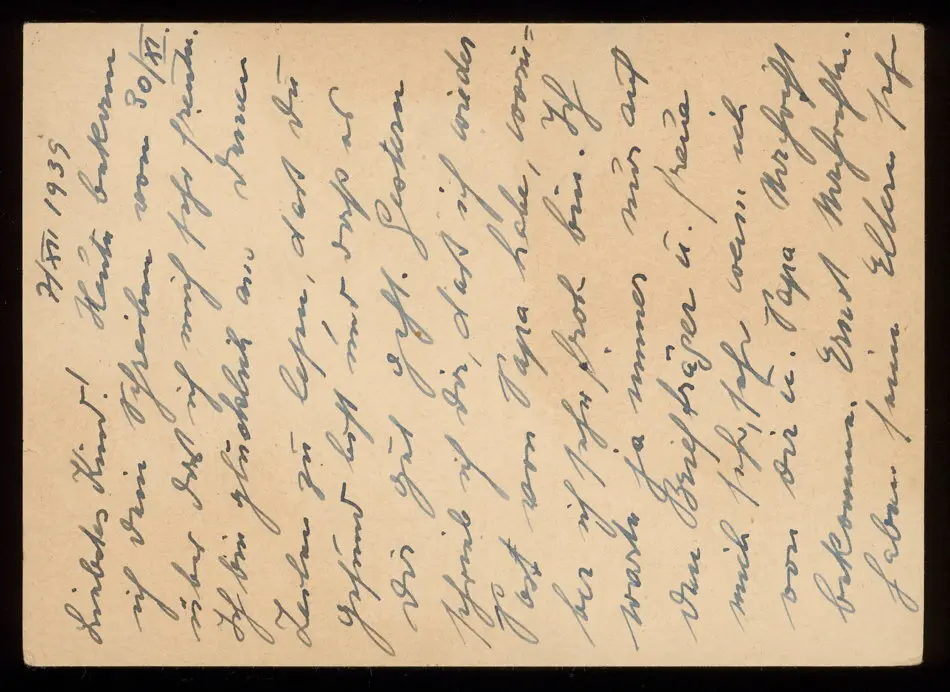 7/XII 1939
Liebstes Kind! Heute bekam
ich dein Schreiben vom 30/XI.
über das ich mich sehr freute.
Ich bin glücklich aus deinen
Zeilen zu lesen, dass du
gesund bist und dass es
dir gut geht. Gestern
schrieb ich dir, dass ich wieder
Post von Papa habe, worü-
ber ich sehr froh bin. Ich
warte ja immer nur auf
den Briefträger u. freue
mich sehr, sehr wenn ich
von dir u. Papa Nachricht
bekomme. Ernst Nachricht.
haben seine Eltern